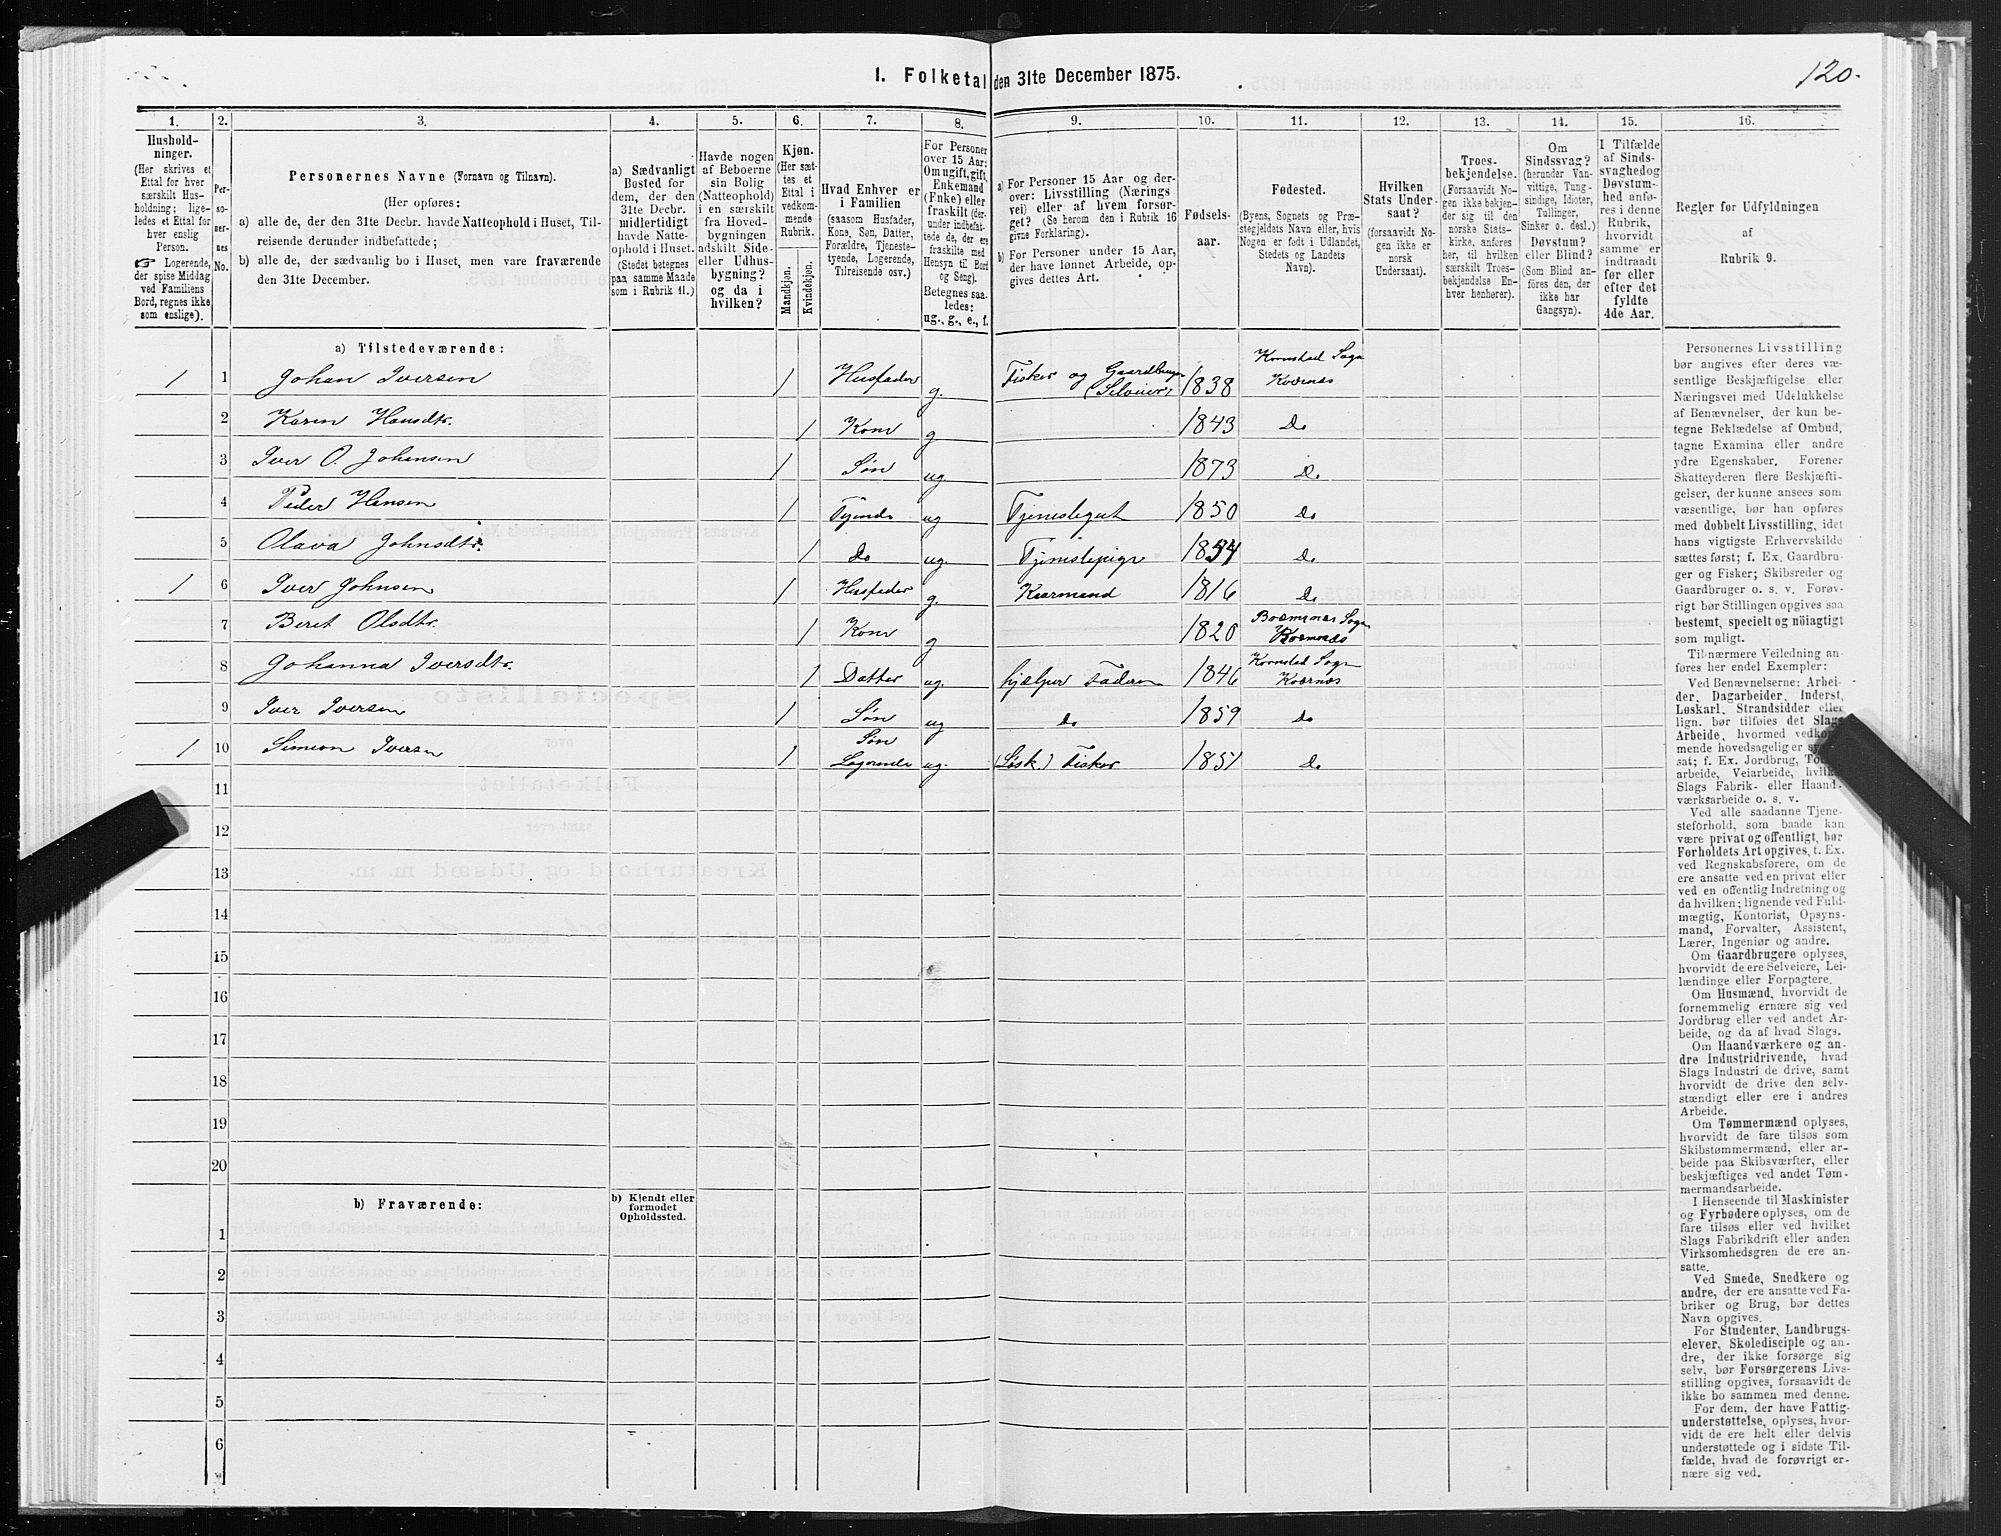 120.
1. Folketal den 31te December 1875.
1. 2. 3. 4. 5. 6. 7. 8. 9. 10. 11. 12. 13. 14. 15. 16.
Hushold-
ninger.
(Her skrives et
Ettal for hver
særskilt Hus-
holdning; lige-
ledes et Ettal for
hver enslig
Person.
☞ Logerende,
der spise Middag
ved Familiens
Bord, regnes ikke
som enslige).
Per-
so-
ner-
nes
No.
Personernes Navne (Fornavn og Tilnavn).
(Her opføres:
a) alle de, der den 31te Decbr. havde Natteophold i Huset, Til-
reisende derunder indbefattede;
b) alle de, der sædvanlig bo i Huset, men vare fraværende
den 31te December.
a) Sædvanligt
Bosted for
dem, der den
31te Decbr.
midlertidigt
havde Natte-
ophold i Huset.
(Stedet betegnes
paa samme Maade
som i Rubrik 11.)
Havde nogen
af Beboerne
sin Bolig
(Natteophold)
i en særskilt
fra Hoved-
bygningen
adskilt Side-
eller Udhus-
bygning?
og da i
hvilken?
Kjøn.
(Her sæt-
tes et
Ettal i
vedkom-
mende
Rubrik.
Mandkjøn.
Kvindekjøn.
Hvad Enhver er
i Familien
(saasom Husfader,
Kone, Søn, Datter,
Forældre, Tjeneste-
tyende, Logerende,
Tilreisende osv.)
For Personer
over 15 Aar:
Om ugift, gift,
Enkemand
(Enke) eller
fraskilt (der-
under indbefat-
tede de, der ere
fraskilte med
Hensyn til Bord
og Seng).
Betegnes saa-
ledes:
ug., g., e., f.
a) For Personer 15 Aar og der-
over: Livsstilling (Nærings
vei) eller af hvem forsør-
get? (Se herom den i Rubrik 16
givne Forklaring).
b) For Personer under 15 Aar,
der have lønnet Arbeide, op-
gives dettes Art.
Fødsels-
aar.
Fødested.
(Byens, Sognets og Præ-
stegjeldets Navn eller, hvis
Nogen er født i Udlandet,
Stedets og Landets
Navn).
Hvilken
Stats Under-
saat?
(forsaavidt No-
gen ikke er
norsk
Undersaat).
Troes-
bekjendelse.
(Forsaavidt No-
gen ikke bekjen-
der sig til den
norske Stats-
kirke, anføres
her, til hvilken
særskilt Troes-
bekjendelse En-
hver henhører).
Om
Sindssvag?
(herunder Van-
vittige, Tung-
sindige, Idioter,
Tullinger,
Sinker o. desl.)
Døvstum?
eller Blind?
(Som Blind an-
føres den, der
ikke har
Gangsyn).
I Tilfælde
af Sinds-
svaghed og
Døvstum-
hed anfø-
res i denne
Rubrik,
hvorvidt
samme er
indtraadt
før eller
efter det
fyldte
4de Aar.
Regler for Udfyldningen
af
Rubrik 9.
a) Tilstedeværende:
1 1 Johan Iversen 1 Husfader g. Fisker og Gaardbruger (Selveier) 1838 Kornstad Sogn Kværnæs
2 Karen Hansdtr. 1 Kone g 1843 Do
3 Iver O. Johansen 1 Søn ug 1873 Do
4 Peder Hansen 1 Tyende ug Tjenestegut 1850 Do
5 Olava Johnsdtr. 1 Do ug. Tjenestepige 1854 Do
1 6 Iver Johnsen 1 Husfader g. Kaarmand 1816 Do
7 Beret Olsdtr. 1 Kone g 1820 Bremsnæs Sogn Kværnæs
8 Johanna Iversdtr. 1 Datter ug. hjælper Faderen 1846 Kornstad Sogn Kværnæs
9 Iver Iversen 1 Søn ug do 1859 Do
1 10 Simeon Iversen 1 Søn Logerende ug. (Løsk.) Fisker 1851 Do
11
12
13
14
15
16
17
18
19
20
b) Fraværende:
b) Kjendt eller
formodet
Opholdssted.
1
2
3
4
5
6
Personernes Livsstilling
bør angives efter deres væ-
sentlige Beskjæftigelse eller
Næringsvei med Udelukkelse
af Benævnelser, der kun be-
tegne Beklædelse af Ombud,
tagne Examina eller andre
ydre Egenskaber. Forener
Skatteyderen flere Beskjæfti-
gelser, der kunne ansees som
væsentlige, bør han opføres
med dobbelt Livsstilling, idet
hans vigtigste Erhvervskilde
sættes først; f. Ex. Gaardbru-
ger og Fisker; Skibsreder og
Gaardbruger o. s. v. Forøv-
rigt bør Stillingen opgives saa
bestemt, specielt og nöiagtigt
som muligt.
Til nærmere Veiledning an-
føres her endel Exempler:
Ved Benævnelserne: Arbei-
der, Dagarbeider, Inderst,
Løskarl, Strandsidder eller
lign. bør tilføies det Slags
Arbeide, hvormed vedkom-
mende hovedsagelig er
sat; f. Ex. Jordbrug,
arbeide, Veiarbeide, hvilket
Slags Fabrik- eller Haand-
værksarbeide o. s. v.
Ved alle saadanne Tjene-
steforhold, som baade kan
være privat og offentligt, bør
Forholdets Art opgives, t. Ex.
ved Regnskabsførere, om de
ere ansatte ved en privat eller
ved en offentlig Indretning og
da hvilken; lignende ved Fuld-
mægtig, Kontorist, Opsyns-
mand, Forvalter, Assistent,
Lærer, Ingeniør og andre.
Om Gaardbrugere oplyses,
hvorvidt de ere Selveiere, Lei-
lændinge eller Forpagtere.
Om Husmænd, hvorvidt de
fornemmelig ernære sig ved
Jordbrug eller ved andet Ar-
beide, og da af hvad Slags.
Om Haandværkere og an-
dre Industridrivende, hvad
Slags Industri de drive, samt
hvorvidt de drive den selv-
stændigt eller ere i andres
Arbeide.
Om Tømmermænd oplyses,
hvorvidt de fare tilsøs som
Skibstømmermænd, eller ar-
beide paa Skibsværfter, eller
beskjæftiges ved andet Tøm-
mermandsarbeide.
I Henseende til Maskinister
og Fyrbødere oplyses, om de
fare tilsøs eller ved hvilket
Slags Fabrikdrift eller anden
Virksomhedsgren de ere an-
satte.
Ved Smede, Snedkere og
andre, der ere ansatte ved Fa-
briker og Brug, bør dettes
Navn opgives.
For Studenter, Landbrugs-
elever, Skoledisciple og an-
dre, der ikke forsørge sig
selv, bør Forsørgerens Livs-
stilling opgives, forsaavidt de
ikke bo sammen med denne.
For dem, der have Fattig-
understøttelse, oplyses, hvor-
vidt de ere helt eller delvis
understøttede og i sidste Til-
fælde, hvad de forøvrigt er-
nære sig ved.